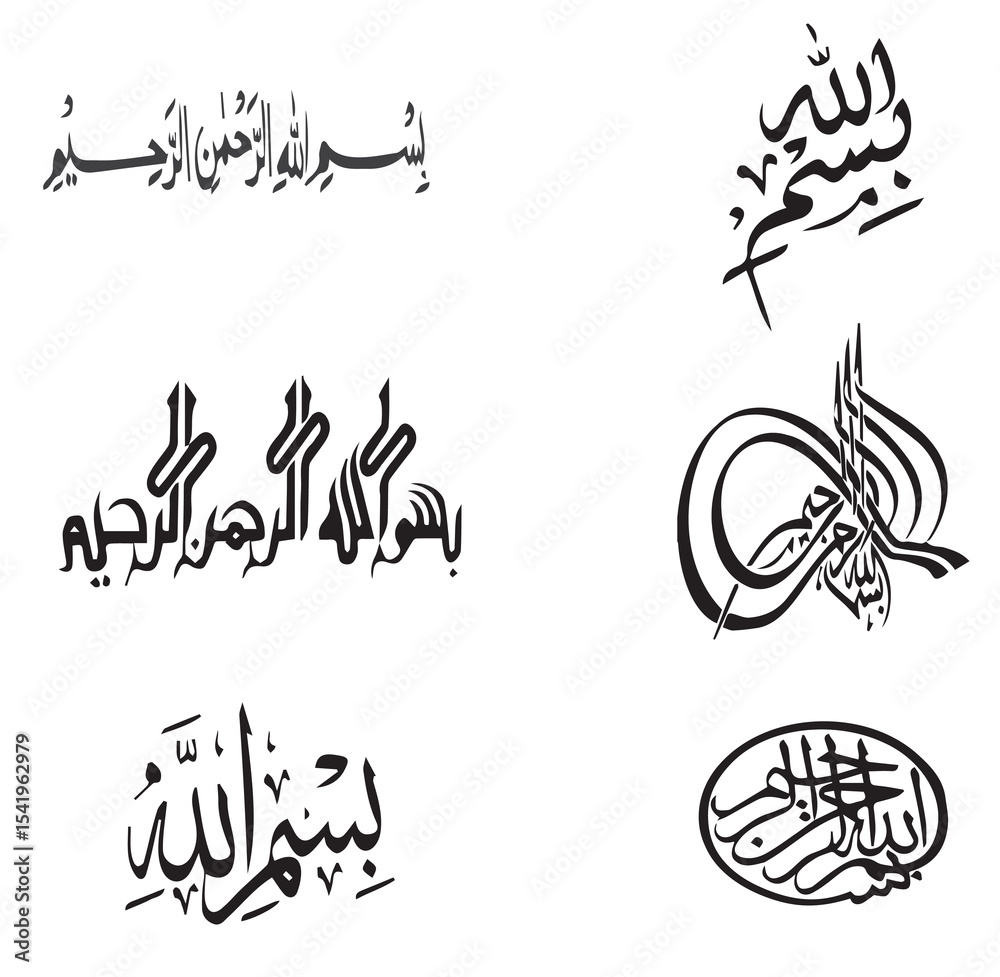 بِسْمِ اللّٰهِ الرَّحْمٰنِ الرَّحِيمِ
بِسْمِ الله
بسم الله الرحمن الرحيم
بسم الله الرحمن الرحيم
بِسْمِ اللَّهِ
بسم الله الرحمن الرحيم
Adobe Stock | #1541962979